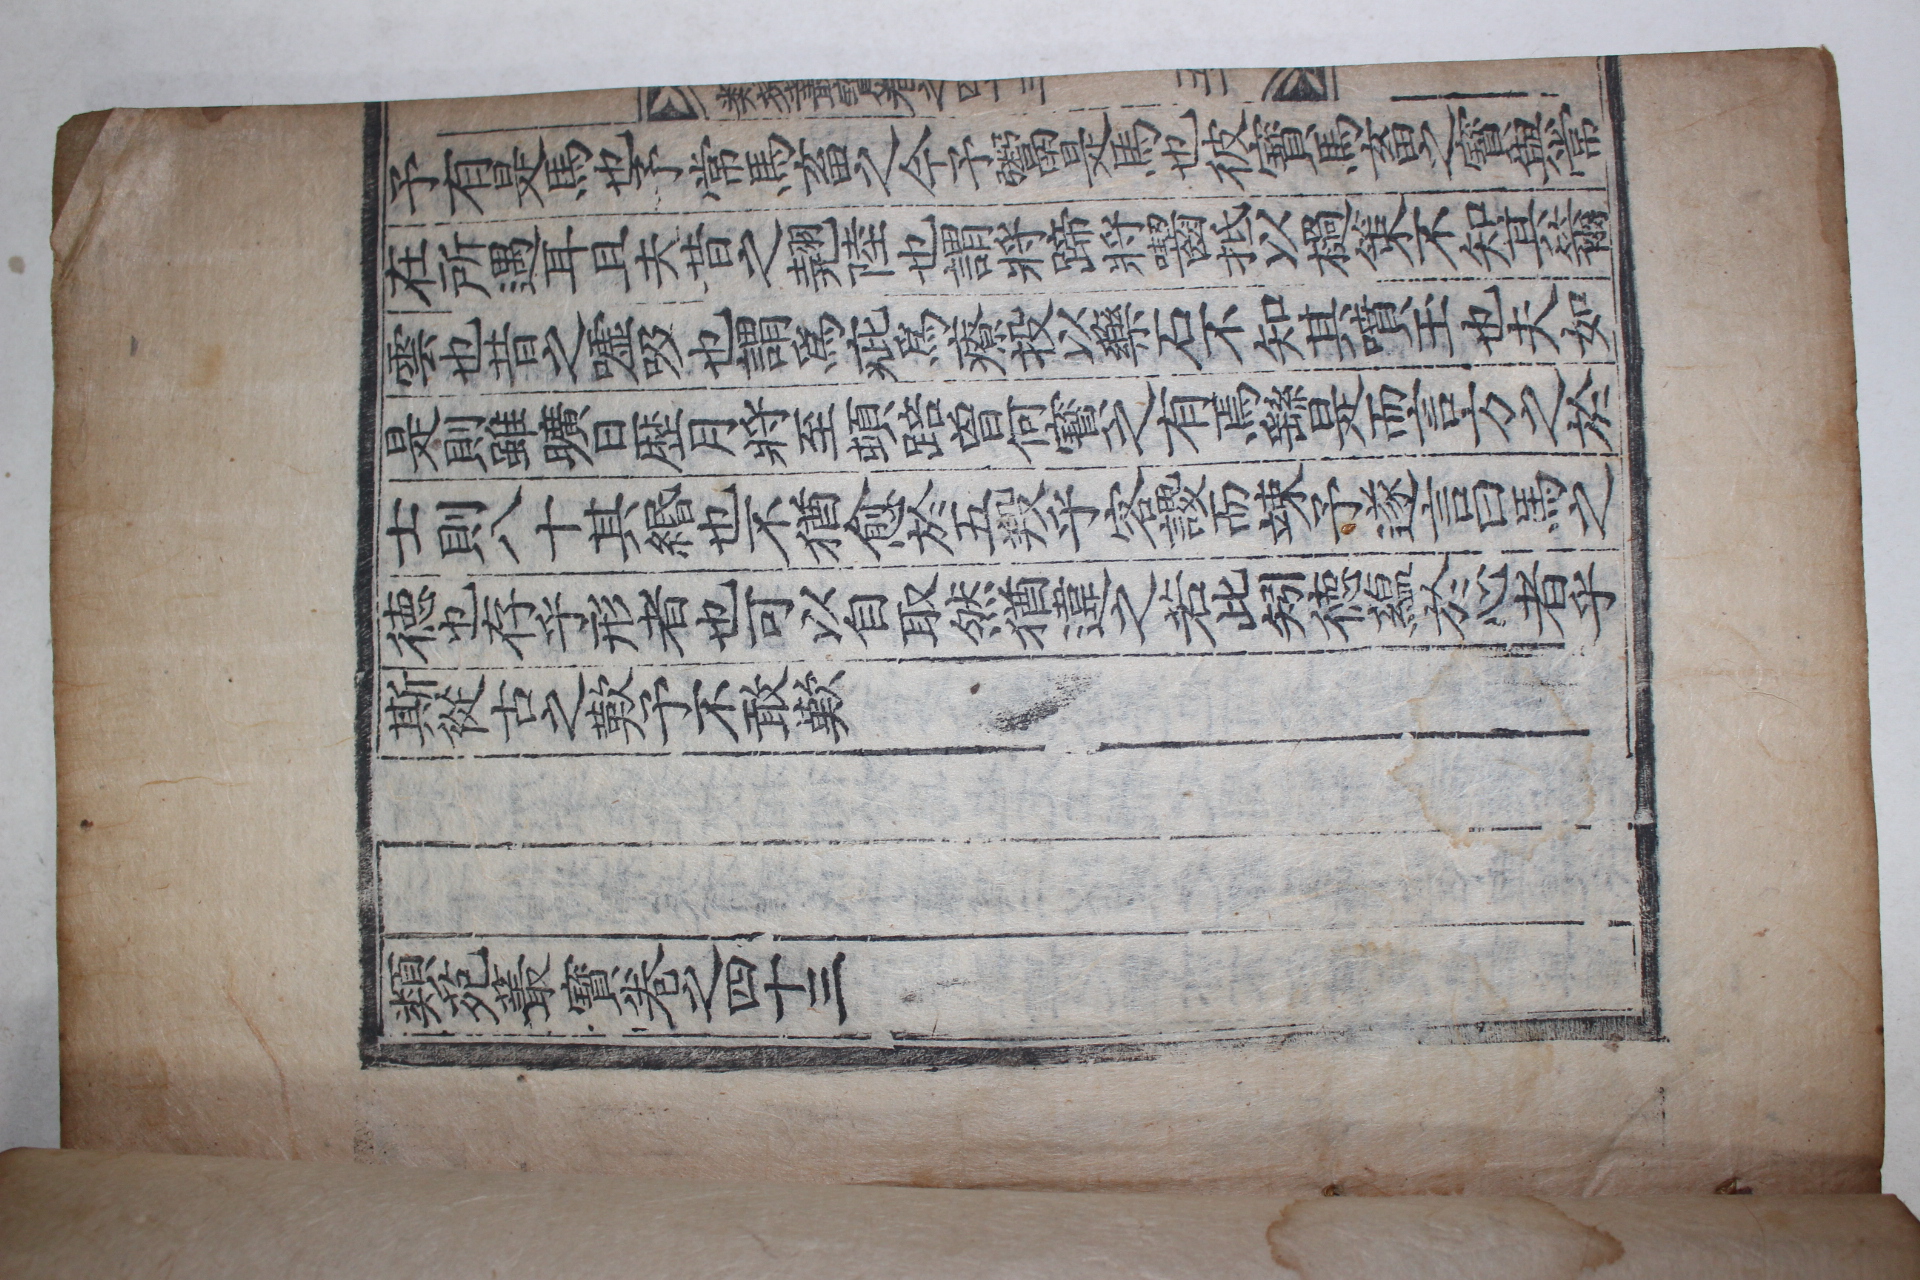 予有是馬也予常馬畜之今予鬻是馬也彼寶馬畜之寶與常
在所遇耳且夫昔之翹陸也謂將蹄將齧抵以檛策不知其籋
雲也昔之噓吸也謂爲疵爲療投以藥石不知其噴玉也夫如
是則雖曠日歷月將至頓踣曾何寶之有焉繇是而言方之於
士則八十其緡也不猶愈於五羖乎客謖而竦予遂言曰馬之
德也存乎形者也可以自取然猶違之若此矧德蘊於心者乎
斯從古之歎予不敢歎
類苑叢寶卷之四十三
類苑叢寶卷之四十三